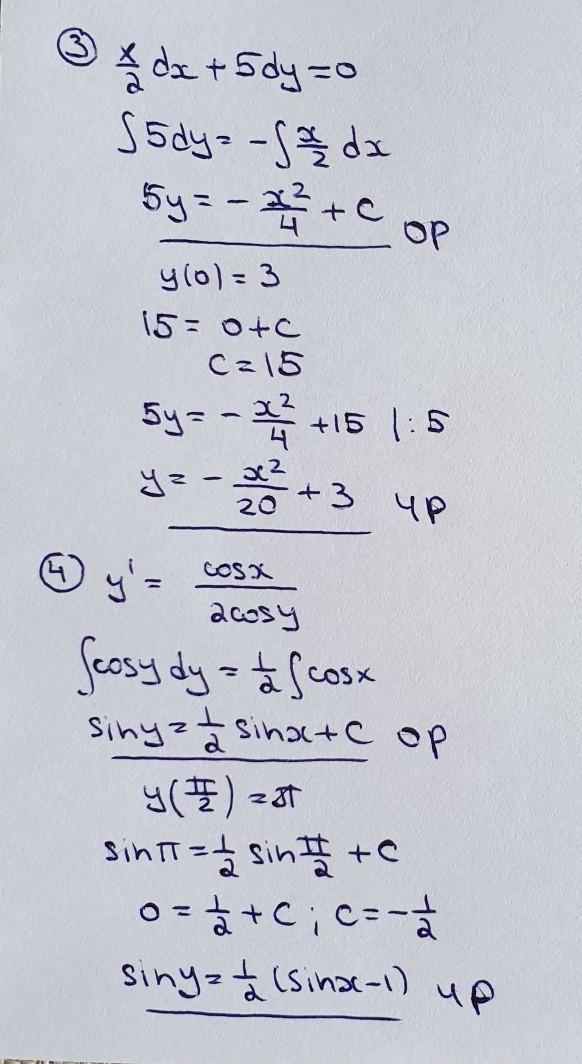 ③ x/2 dx + 5dy = 0
∫5dy = -∫ x/2 dx
5y = - x²/4 + C ОР
y(0) = 3
15 = 0 + C
C = 15
5y = - x²/4 + 15 |: 5
y = - x²/20 + 3 ЧР
④ y' = cosx / 2cosy
∫cosy dy = 1/2 ∫cosx
siny = 1/2 sinx + C ОР
y(π/2) = π
sinπ = 1/2 sin π/2 + C
0 = 1/2 + C ; C = - 1/2
siny = 1/2 (sinx - 1) ЧР